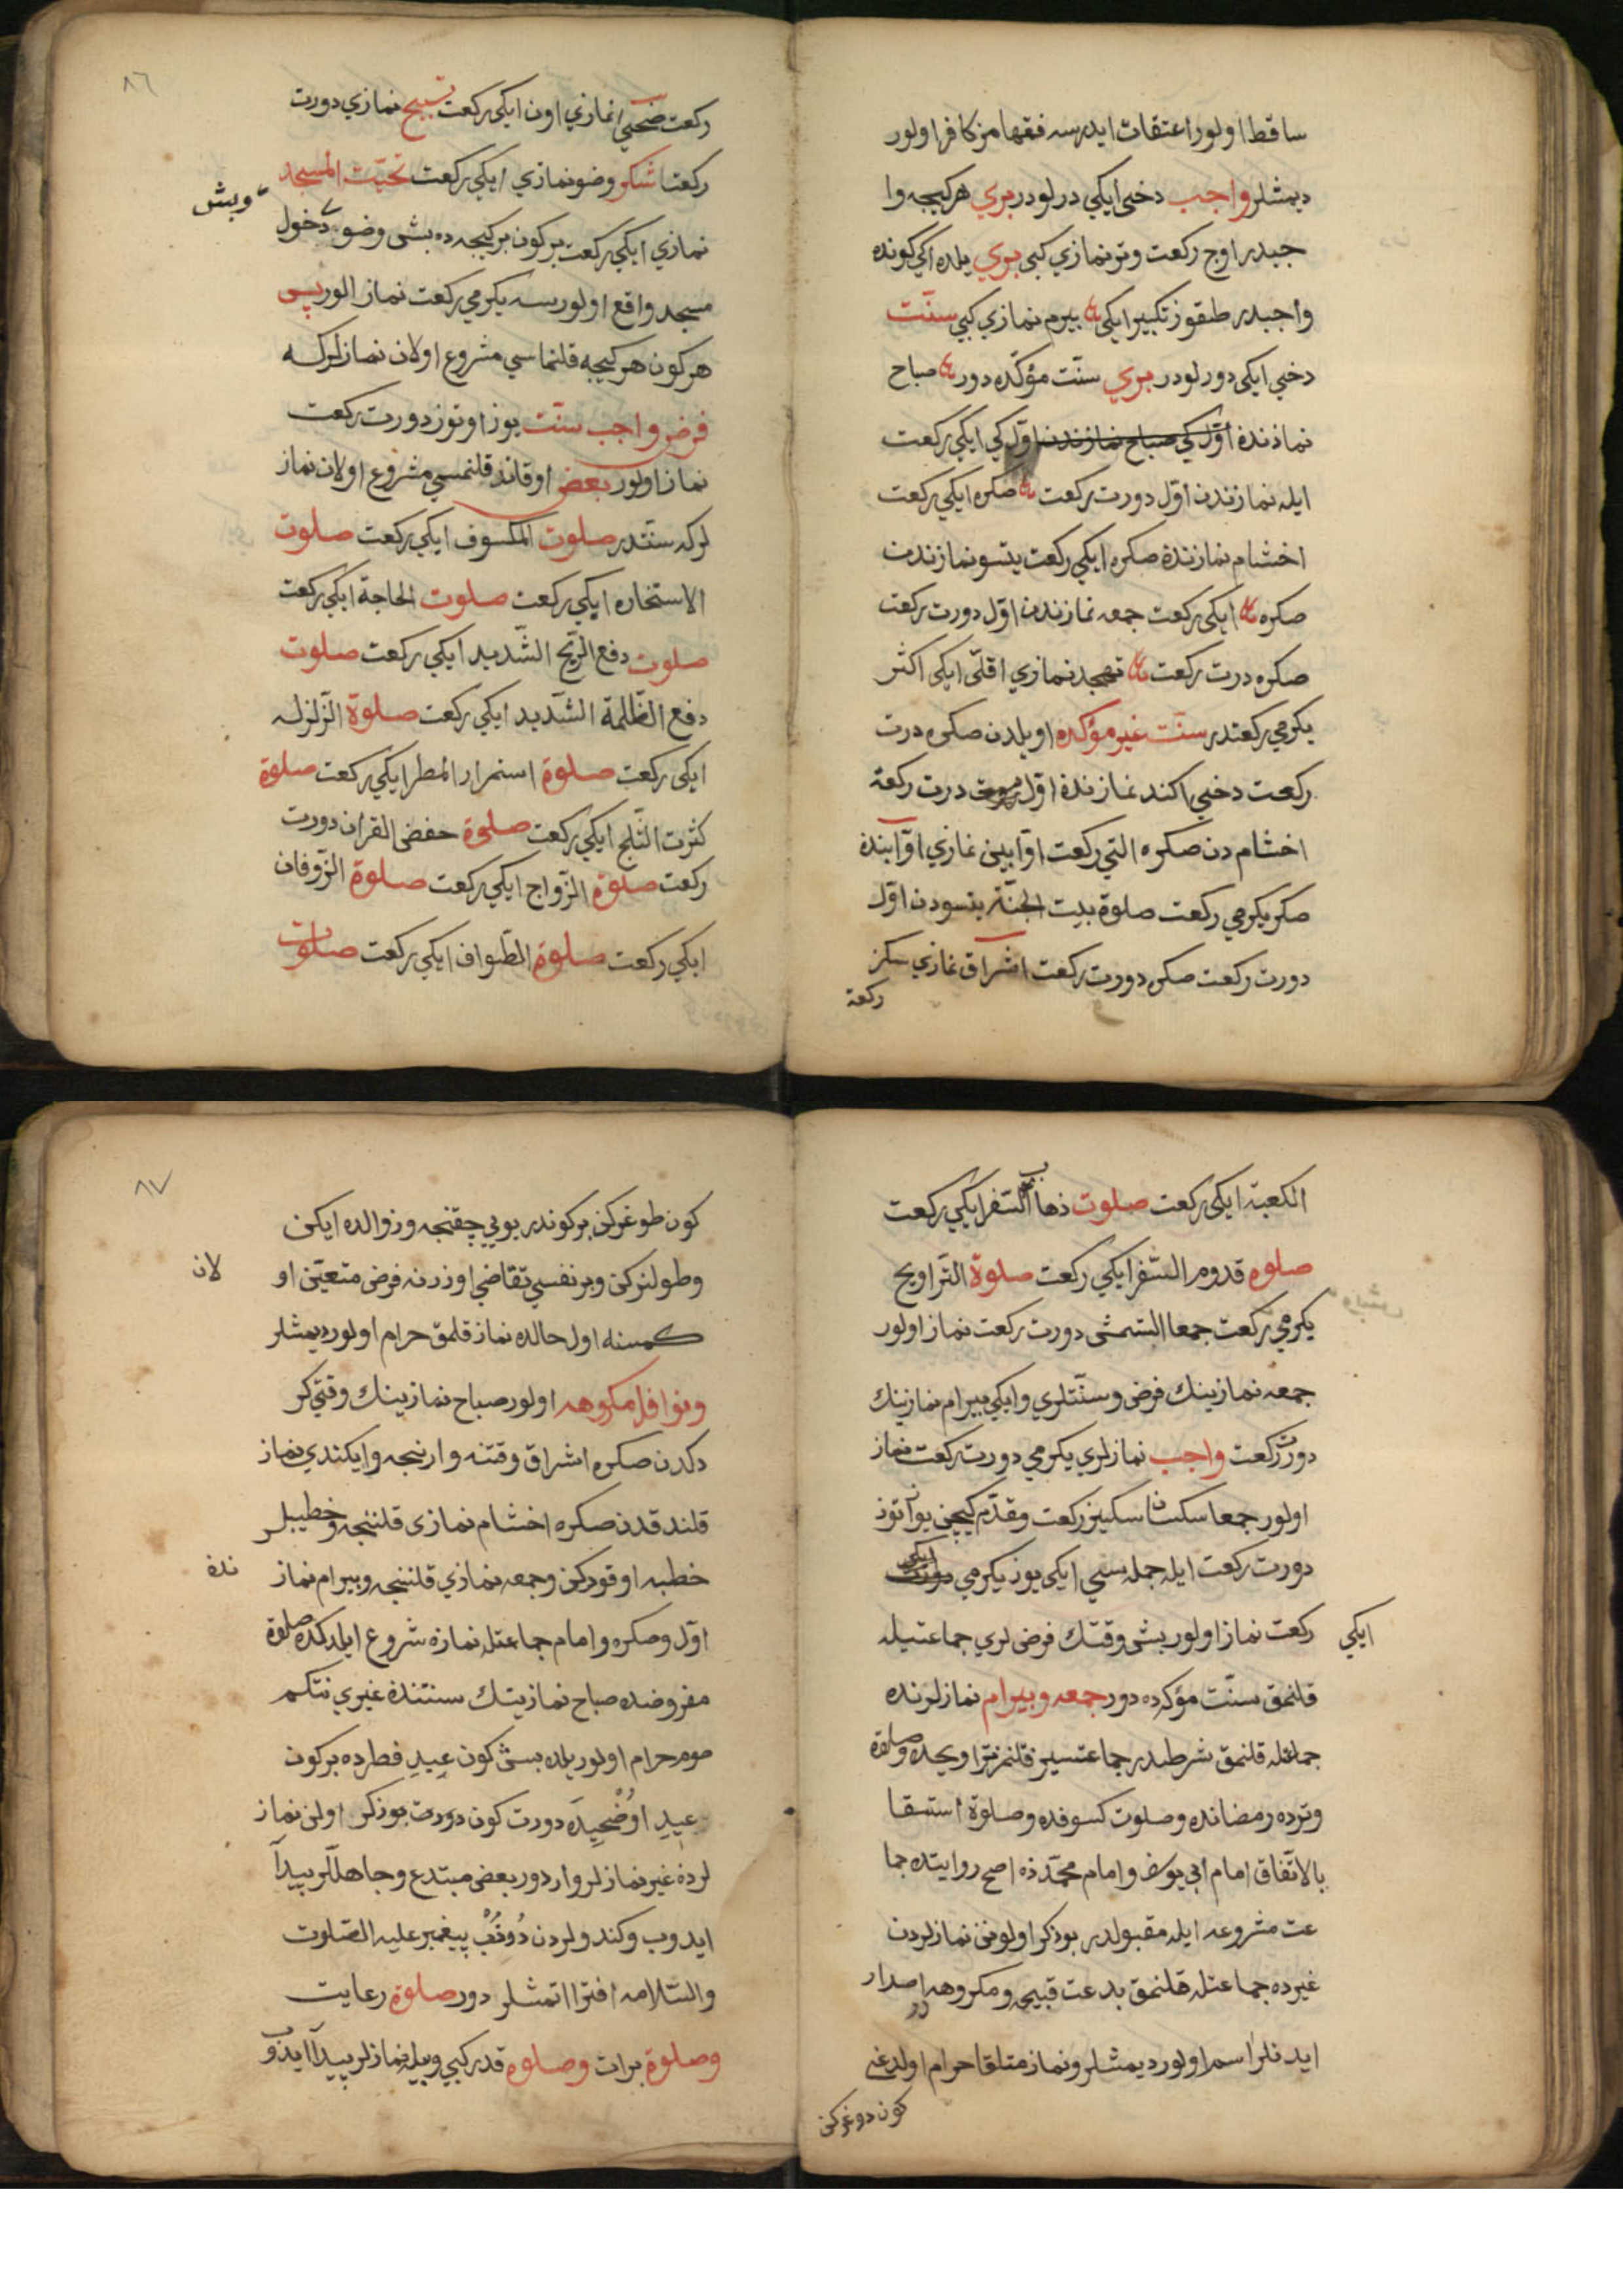 ساقط اولور اعتقات ايدرسه فقهامز كافر اولور
ديمشلر واجب دخى ايكى درلودر بري هركيجه وا
جبدر اوچ ركعت وتر نمازي كبى بري يلده اكى كونده
واجبدر طقوز تكبير ايكى بيرم نمازي كبي سنّت
دخى ايكى دورلودر بري سنّت مؤكّده دور صباح
نمازندة اوّل كي صباح نمازندن اوّل كي ايكي ركعت
ايله نمازندن اوّل دورت ركعت صكره ايكي ركعت
اخشام نمازندة صكره ايكي ركعت يتسو نمازندن
صكره ايكى ركعت جمعه نمازندن اوّل دورت ركعت
صكره درت ركعت تهجد نمازي اقلّى ايكى اكثر
يكرمي ركعتدر سنّت غير مؤكده اويلدن صكره درت
ركعت دخي اكند نمازندة اوّل درت ركعة
اخشام دن صكره التي ركعت اوّابين نمازي اوّابيندة
صكر يكرمي ركعت صلوة بيت الجنّة يتسودن اوّل
دورت ركعت صكر دورت ركعت اشراق نمازي سكز
ركعة
٨٦
ركعت ضحى نمازي اون ايكي ركعت تسبيح نمازي دورت
ركعت شكر وضو نمازي ايكي ركعت تحيّت المسجد
وبش
نمازي ايكي ركعت بركون بركيجه ده بش وضو دخول
مسجد واقع اولورسه يكرمي ركعت نماز الور پس
هركون هركيجه قلنماسي مشروع اولان نمازلركه
فرض واجب سنّت يوز اوتوز دورت ركعت
نماز اولور بعض اوقاتد قلنمسي مشروع اولان نماز
لركه سنّتدر صلوت الكسوف ايكي ركعت صلوت
الاستخاره ايكي ركعت صلوت الحاجة ايكي ركعت
صلوت دفع الرّيح الشّديد ايكي ركعت صلوت
دفع الظّلمة الشّديد ايكي ركعت صلوة الزّلزله
ايكى ركعت صلوة استمرار المطر ايكي ركعت صلوة
كثرت الثّلج ايكي ركعت صلوة حفض القران دورت
ركعت صلوة الزّواج ايكي ركعت صلوة الزّوفان
ايكي ركعت صلوة الطّواف ايكي ركعت صلوت
الكعبة ايكى ركعت صلوت ذهاب السّفر ايكي ركعت
صلوه قدوم السّفر ايكي ركعت صلوة التّراويح
يكرمي ركعت جمعا التمش دورت ركعت نماز اولور
جمعه نمازينك فرض وسنّتلري وايكي بيرام نمازينك
دورت ركعت واجب نمازلري يكرمي دورت ركعت نماز
اولور جمعا سكسان سكيز ركعت ومقدّم كيچن يوز اتوز
دورت ركعت ايله جمله سي ايكى يوز يكرمي ايكي
ايكي
ركعت نماز اولور بش وقتك فرض لري جماعتيله
قلنمق سنّت مؤكده دور جمعه وبيرام نمازلرنده
جماعتله قلنمق شرطدر جماعتسيز قلنمز تراويحده وصلوة
وترده رمضانده وصلوت كسوفده وصلوة استسقا
بالاتّفاق امام ابى يوسف وامام محمّد ذه اصح روايتده جما
عت مشروعه ايله مقبولدر بوذكر اولونن نمازلردن
غيرده جماعتله قلنمق بدعت قبيحه ومكروهدر اصدار
ايدنلر اسم اولور ديمشلر ونماز متلقا حرام اولدغى
كون دوغركن
٨٧
كون طوغركن بركوندر بويى چقنجه وزوالده ايكن
وطولنركن وبر نفسي تقاضي اوزرنه فرض متعيّن او
لان
كمسنه اول حالده نماز قلمق حرام اولور ديمشلر
ونوافل مكروهه اولور صباح نمازينك وقتي كر
دكدن صكره اشراق وقتنه وارنجه وايكندي نماز
قلندقدن صكره اخشام نمازى قلننجه وخطيبلر
خطبه اوقوركن وجمعه نمازي قلننجه وبيرام نماز
ندة
اوّل وصكره وامام جماعتله نمازه شروع ايلدكده صلوة
مفروضده صباح نمازينك سنتندة غيري نتكم
صوم حرام اولور يلده بش كون عيدِ فطرده بركون
عيدِ اوُضْحِيدَه دورت كون دورت بوذكر اولن نماز
لرذة غير نمازلر واردور بعض مبتدع وجاهللّر پيدآ
ايدوب وكندولردن دُوزُبْ پيغمبر عليه الصّلوت
والسّلامه افترا اتمشلر دور صلوة رعايت
وصلوة برات وصلوه قدر كبي وبيله نمازلر پيدآ ايدوب